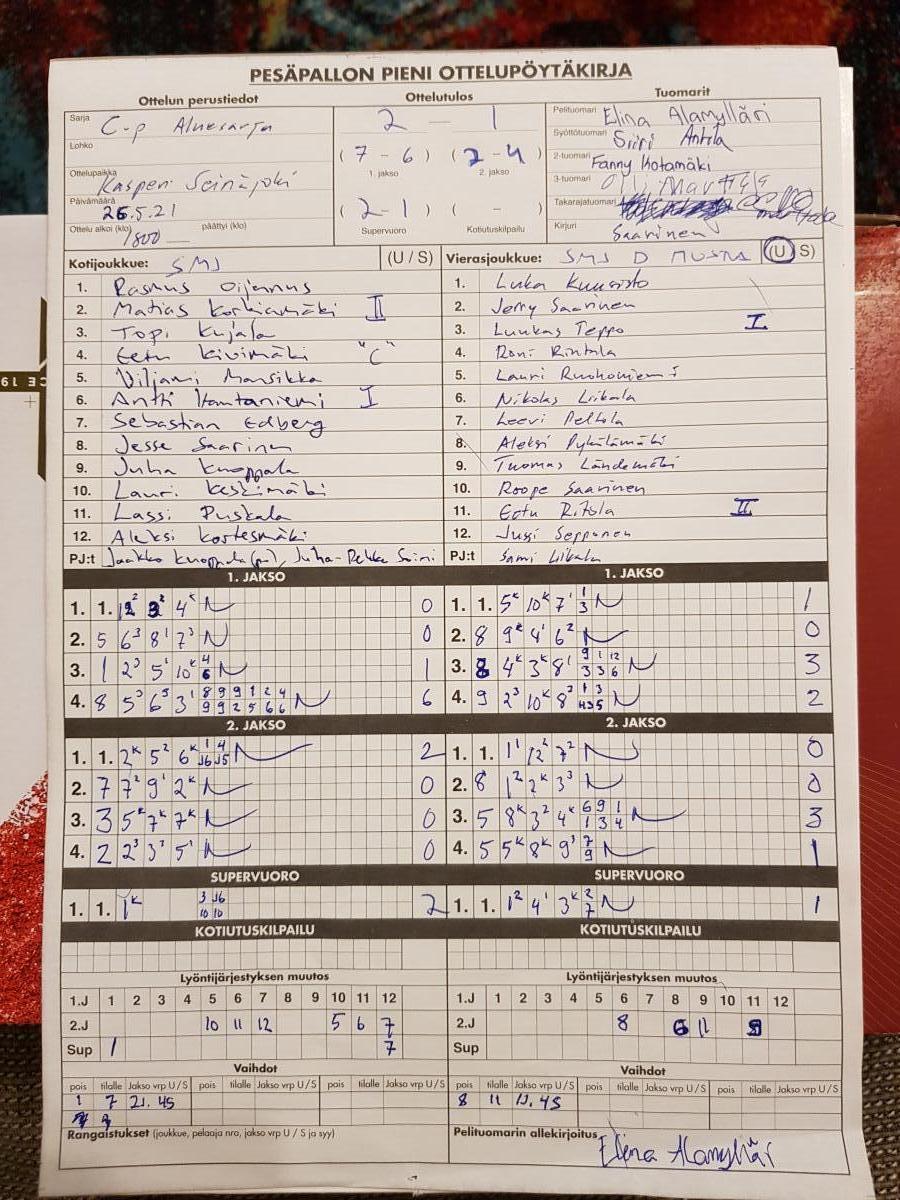 PESÄPALLON PIENI OTTELUPÖYTÄKIRJA
Ottelun perustiedot
Sarja C-p Aluesarja
Lohko
Ottelupaikka Kasperi Seinäjoki
Päivämäärä 26.5.21
Ottelu alkoi (klo) 1800 päättyi (klo)
Ottelutulos
2 — 1
(7 - 6) (2 - 4)
1. jakso 2. jakso
(2 - 1) ( - )
Supervuoro Kotiutuskilpailu
Tuomarit
Pelituomari Elina Alamylläri
Syöttötuomari Siiri Anttila
2-tuomari Fanny Kotamäki
3-tuomari Olli
Takarajatuomari
Kirjuri Saarinen
Kotijoukkue: SMJ (U / S)
1. Rasmus Oijennus
2. Matias Korkiamäki II
3. Topi Kujala
4. Eetu Kivimäki "C"
5. Viljami Mansikka
6. Antti Hantaniemi I
7. Sebastian Edberg
8. Jesse Saarinen
9. Juha Knoppala
10. Lauri Keskimäki
11. Lassi Puskala
12. Aleksi Kortesmäki
PJ:t Jaakko Knuppala (pj), Juha-Pekka Saini
Vierasjoukkue: SMJ D MUSTA (U S)
1. Luka Kuusisto
2. Jerry Saarinen
3. Luukas Teppo I
4. Roni Rintala
5. Lauri Ruohoniemi
6. Nikolas Liikala
7. Leevi Peltola
8. Aleksi Pykälämäki
9. Tuomas Ländemäki
10. Roope Saarinen
11. Eetu Ritola II
12. Jussi Seppänen
PJ:t Sami Liikala
1. JAKSO
1. 1. 12² 3² 4ᴷ 0
2. 5 6³ 8¹ 7³ 0
3. 1 2³ 5¹ 10ᴷ 4 6 1
4. 8 5³ 6⁵ 3¹ 8 9 9 1 2 4 9 9 2 5 6 6 6
1. JAKSO
1. 1. 5ᴷ 10ᴷ 7¹ 1 3 1
2. 8 9ᴷ 4¹ 6² 0
3. 8 4ᴷ 3ᴷ 8¹ 9 1 12 3 3 6 3
4. 9 2³ 10ᴷ 8² 1 3 2
2. JAKSO
1. 1. 2ᴷ 5² 6ᴷ 1 4 J6 J5 2
2. 7 7² 9¹ 2ᴷ 0
3. 3 5ᴷ 7ᴷ 7ᴷ 0
4. 2 2³ 3³ 5¹ 0
2. JAKSO
1. 1. 1¹ 12² 7² 0
2. 8 1² 2ᴷ 3³ 0
3. 5 8ᴷ 3² 4ᴷ 6 9 1 1 3 4 3
4. 5 5ᴷ 8ᴷ 9³ 7 9 1
SUPERVUORO
1. 1. 1ᴷ 3 J6 10 10 2
SUPERVUORO
1. 1. 1² 4¹ 3ᴷ 2 7 1
KOTIUTUSKILPAILU
KOTIUTUSKILPAILU
Lyöntijärjestyksen muutos
1.J 1 2 3 4 5 6 7 8 9 10 11 12
2.J 10 11 12 5 6 7
Sup 1 7
Lyöntijärjestyksen muutos
1.J 1 2 3 4 5 6 7 8 9 10 11 12
2.J 8 6 11 9
Sup
Vaihdot
pois tilalle Jakso vrp U / S pois tilalle Jakso vrp U / S pois tilalle Jakso vrp U / S
1 7 2J. 4S
Vaihdot
pois tilalle Jakso vrp U / S pois tilalle Jakso vrp U / S pois tilalle Jakso vrp U / S
8 11 1J. 4S
Rangaistukset (joukkue, pelaaja nro, jakso vrp U / S ja syy)
Pelituomarin allekirjoitus Elina Alamylläri
CE 19